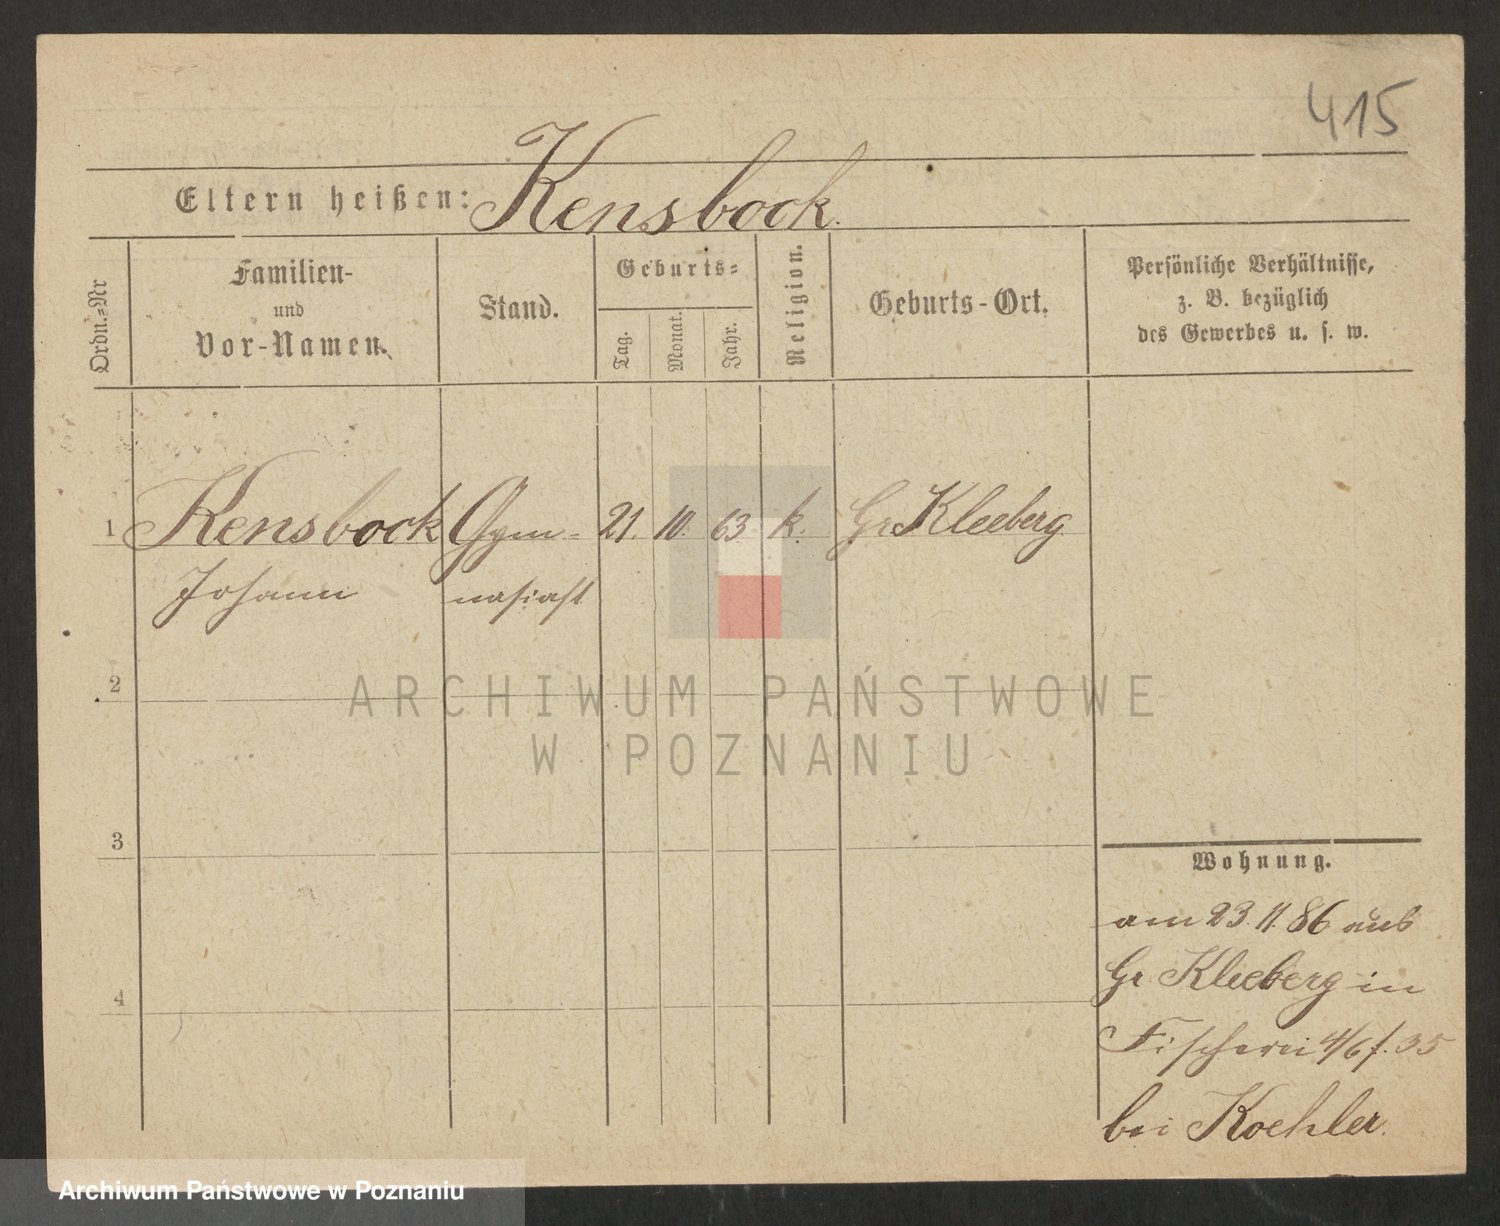 415
Eltern heißen: Kensbock.
Ordn.=Nr
Familien-
und
Vor-Namen.
Stand.
Geburts=
Tag.
Monat.
Jahr.
Religion.
Geburts-Ort.
Persönliche Verhältnisse,
z. B. bezüglich
des Gewerbes u. s. w.
1 Kensbock Gym- 21. 10. 63 k. Gr. Kleeberg
Johann nasiast
2
ARCHIWUM PAŃSTWOWE
W POZNANIU
3
4
Wohnung.
am 23. 11. 86 aus
Gr. Kleeberg in
Fischerei 4/6 f. 35
bei Koehler.
Archiwum Państwowe w Poznaniu